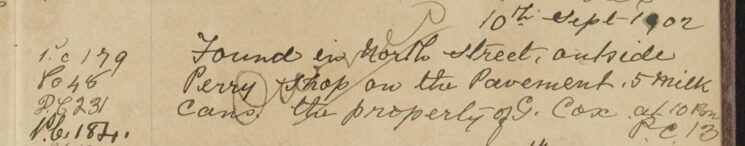 10th Sept 1902
P.C 179 Found in North Street, outside
P.C 48 Perry shop on the Pavement. 5 Milk
P.C 231 cans. the property of G. Cox at 10 Pm
P.C. 184. P.C. 13